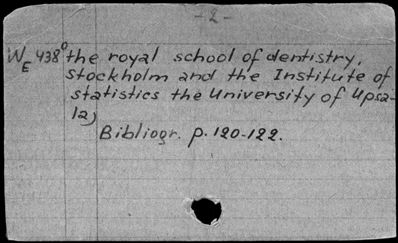 - 2 -
WE 438° the royal school of dentistry,
Stockholm and the Institute of
statistics the University of Upsa-
la)
Bibliogr. p. 120-122.